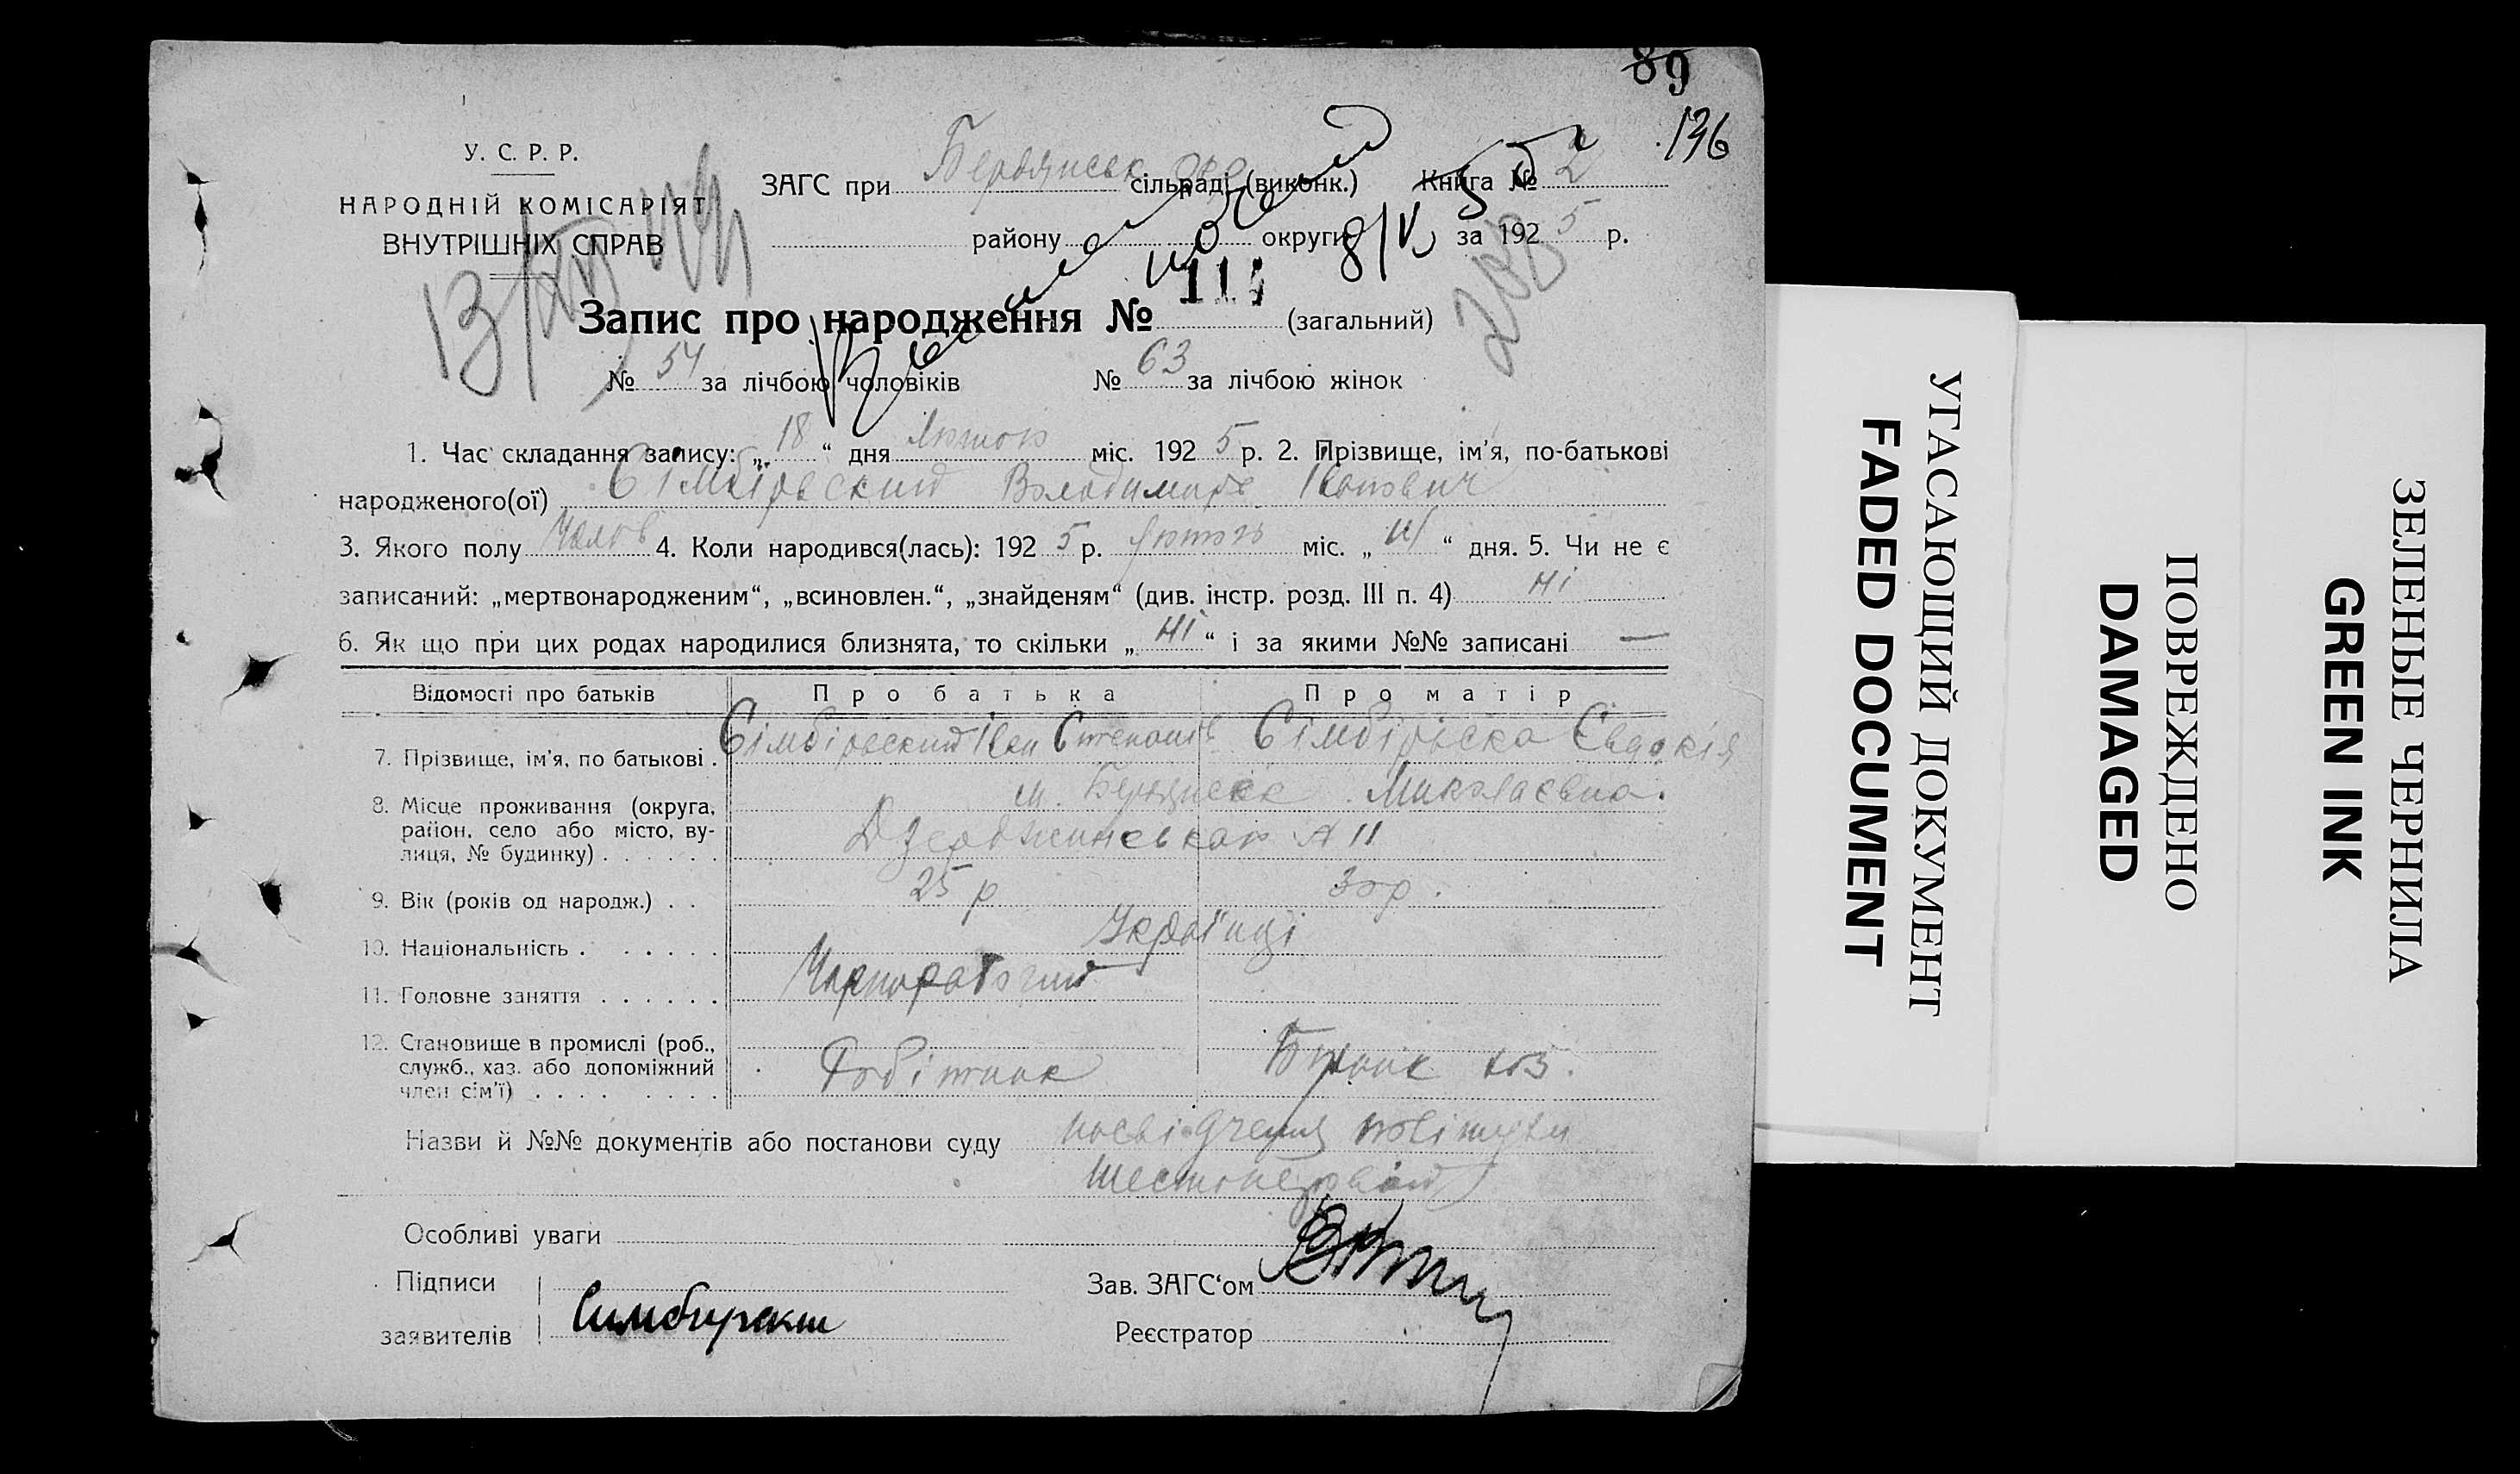 89
136
У. С. Р. Р.
НАРОДНІЙ КОМІСАРІЯТ
ВНУТРІШНІХ СПРАВ
ЗАГС при Бердянськ окр сільраді (виконк.) Книга № 2
району округи за 192 5 р.
8/V
208
Запис про народження № (загальний)
№ 54 за лічбою чоловіків № 63 за лічбою жінок
1. Час складання запису: „ 18 “ дня Лютого міс. 192 5 р. 2. Прізвище, ім'я, по-батькові
народженого(ої) Сімбірський Володимир Іванович
3. Якого полу Чолов 4. Коли народився(лась): 192 5 р. Лютого міс. „ “ дня. 5. Чи не є
записаний: „мертвонародженим“, „всиновлен.“, „знайденям“ (див. інстр. розд. III п. 4) Ні
6. Як що при цих родах народилися близнята, то скільки „ Ні “ і за якими №№ записані —
Відомості про батьків Про батька Про матір
7. Прізвище, ім'я, по батькові . Сімбірський Іван Степанів Сімбірська Євдокія
Миколаєвна.
8. Місце проживання (округа, м. Бердянськ
район, село або місто, ву-
лиця, № будинку) . . . . . . Дзержинськаго № 11
9. Вік (років од народж.) . . 25 р 30 р.
10. Національність . . . . . . Українці
11. Головне заняття . . . . . . Чорноробочий
12. Становище в промислі (роб.,
служб., хаз. або допоміжний Робітник
член сім'ї) . . . . . . . .
Назви й №№ документів або постанови суду посвідчення
Особливі уваги
Підписи Зав. ЗАГС‘ом
заявителів Симбирский Реєстратор
УГАСАЮЩИЙ ДОКУМЕНТ
FADED DOCUMENT
ПОВРЕЖДЕНО
DAMAGED
ЗЕЛЕНЫЕ ЧЕРНИЛА
GREEN INK